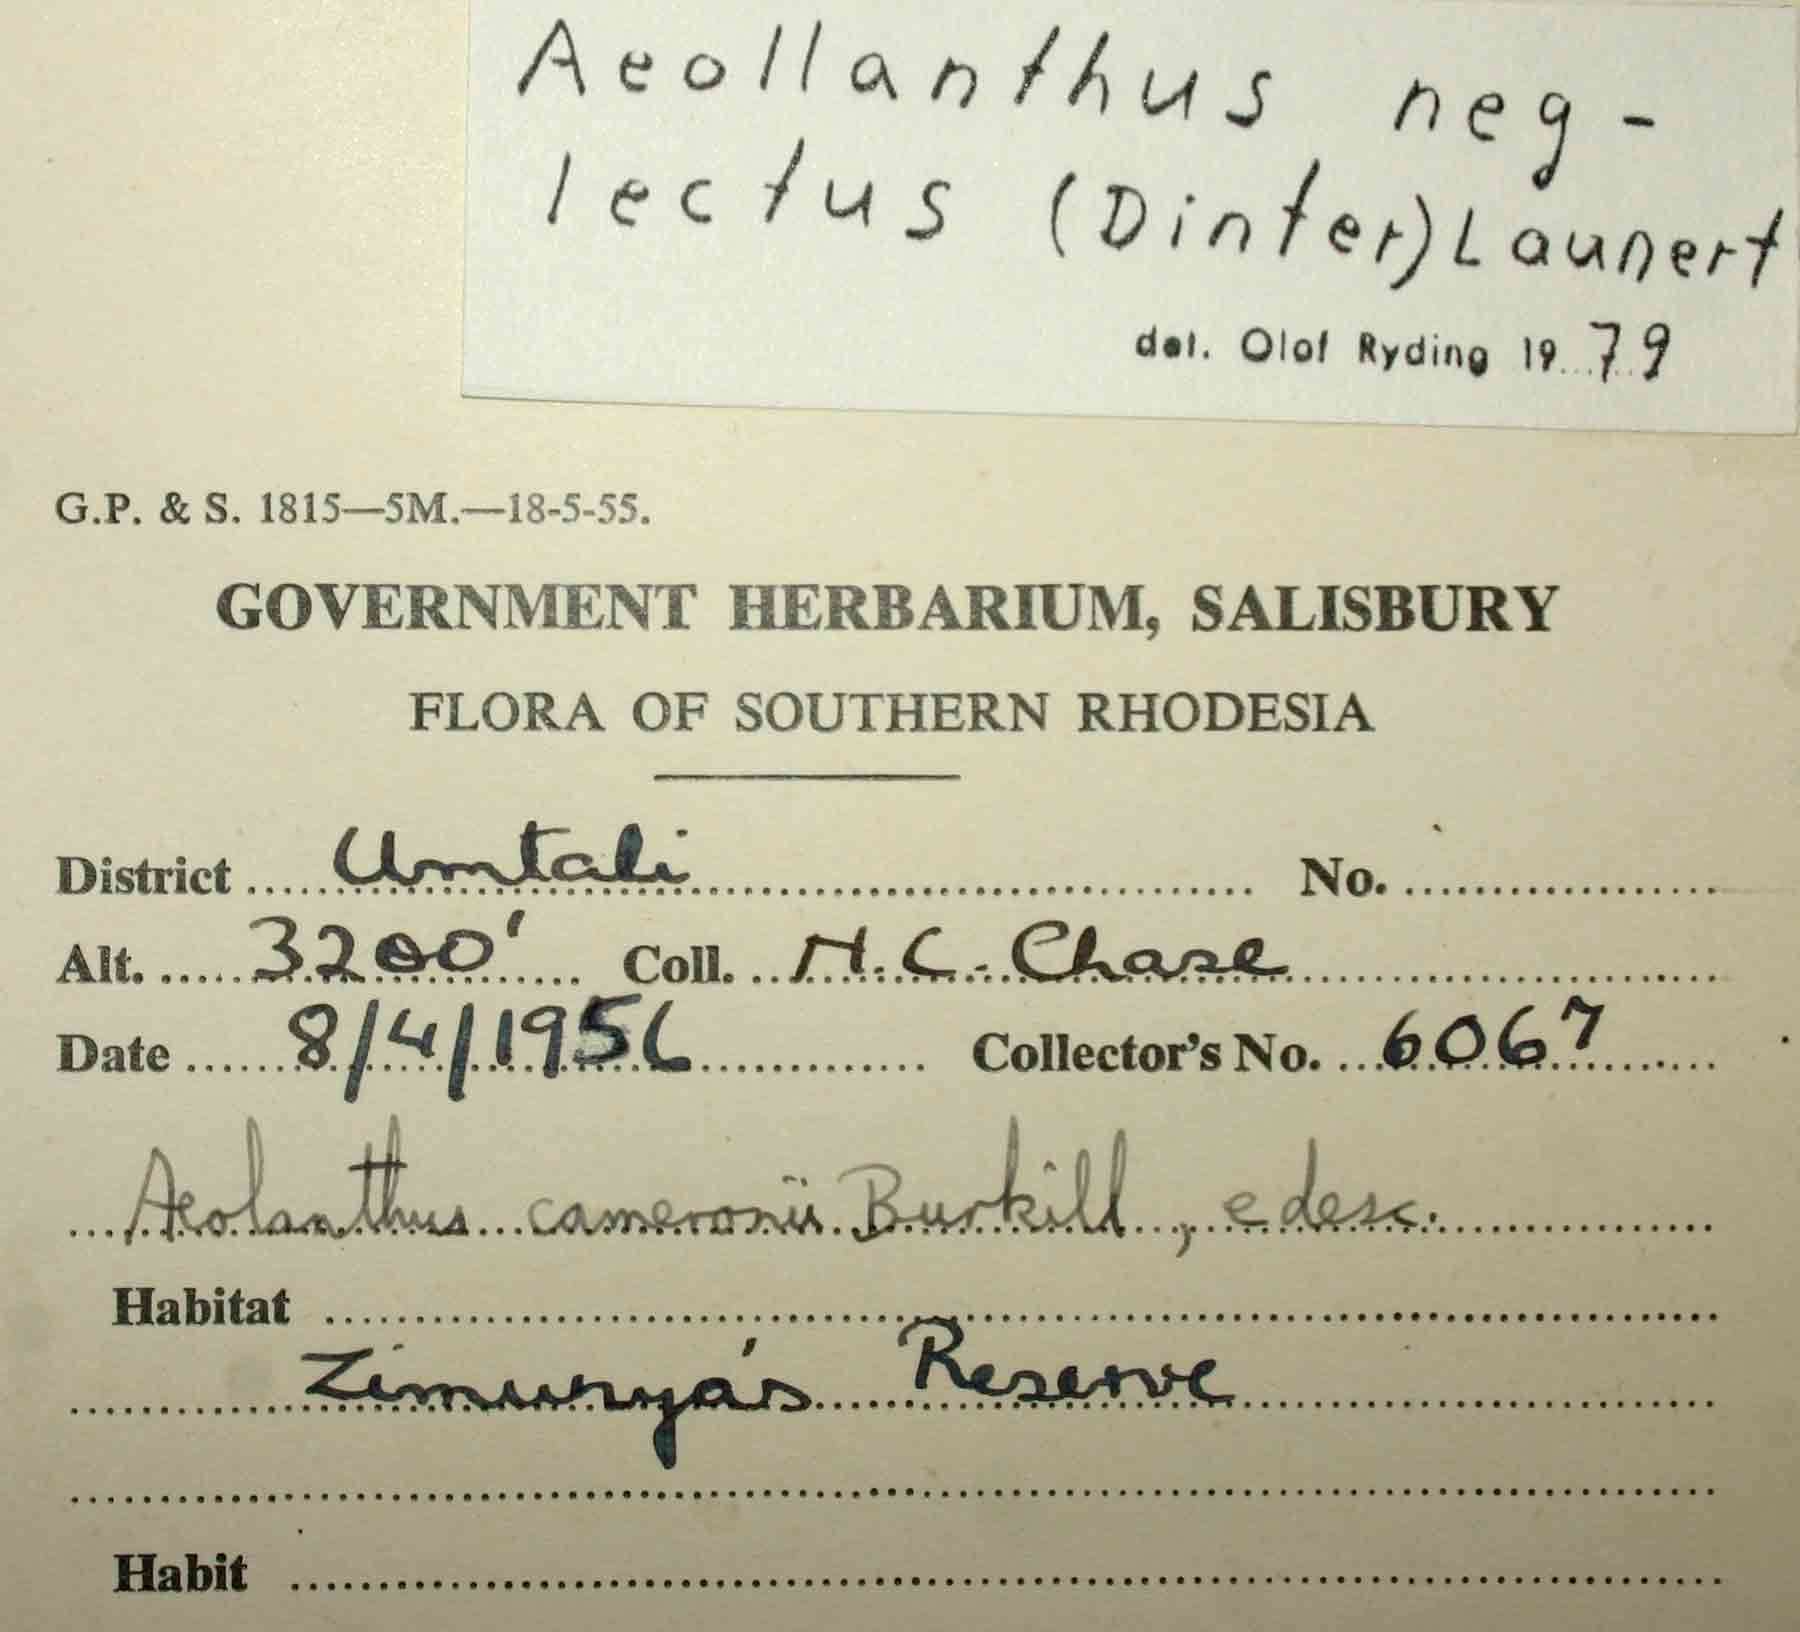 Aeollanthus neg-
lectus (Dinter) Launert
det. Olof Ryding 1979
G.P. & S. 1815—5M.—18-5-55.
GOVERNMENT HERBARIUM, SALISBURY
FLORA OF SOUTHERN RHODESIA
District Umtali No.
Alt. 3200' Coll. N.C. Chase
Date 8/4/1956 Collector's No. 6067
Aeolanthus cameronii Burkill, e desc.
Habitat
Zimunya's Reserve
Habit